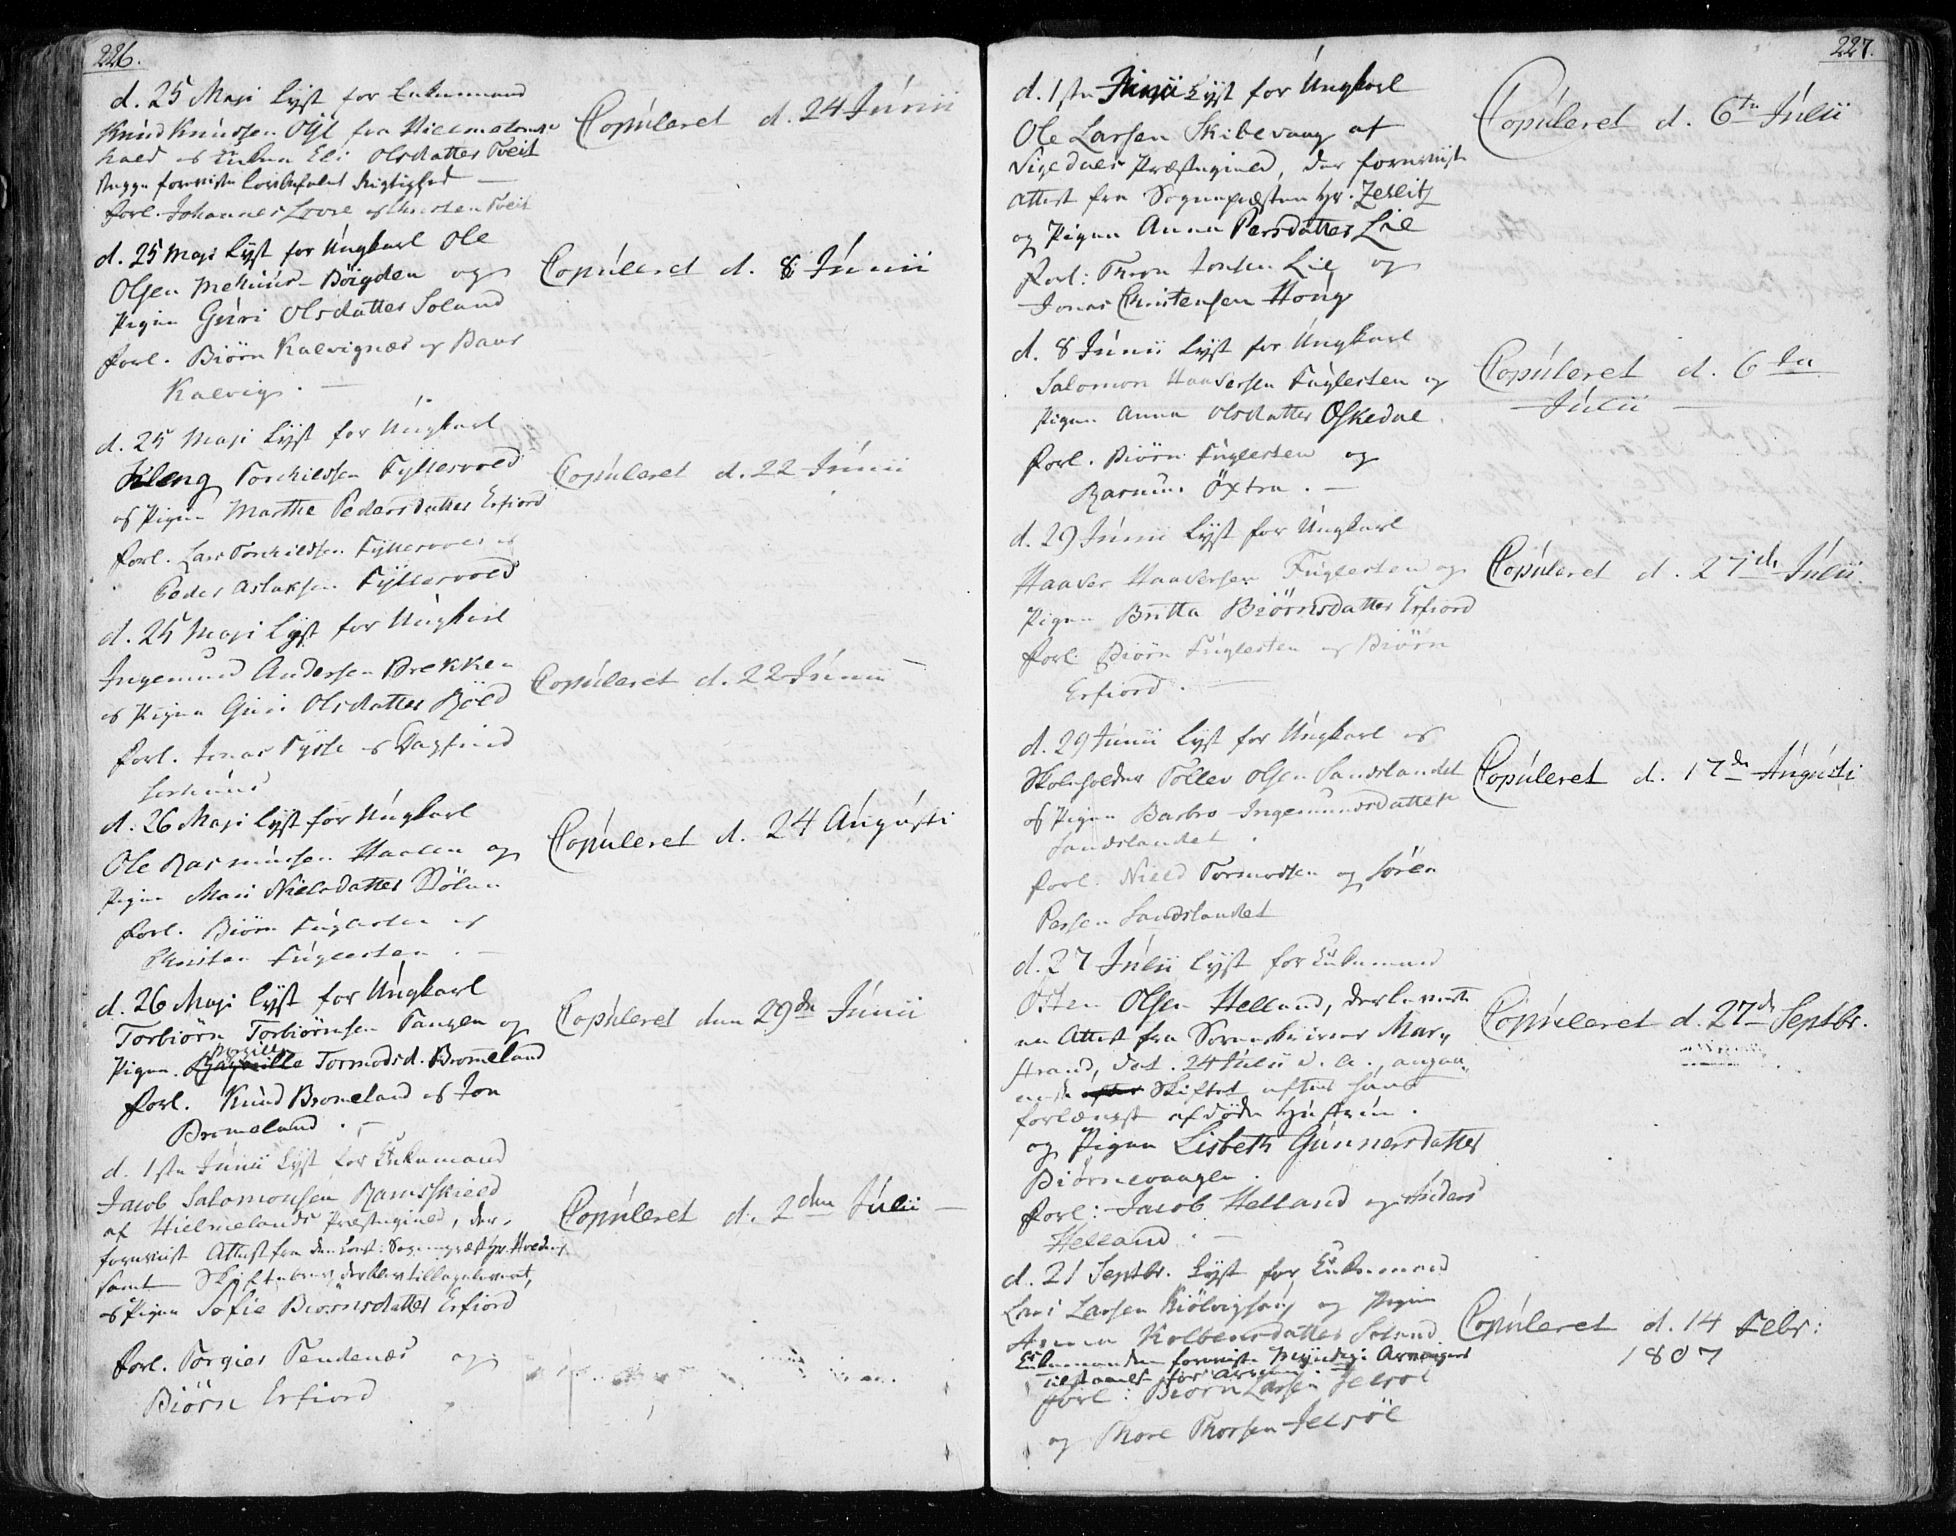 226.
d. 25 Maji Lyst for Enkemand
Knud Knudsen Øye fra Hielmelands
kald og Enken Eli Olsdatter Tveit
begge foreviste lovbefalet Rigtighed —
forl. Johannes Lovre og Tveit
Copúleret d. 24 Júnii
d. 25 Maji Lyst for Ungkarl Ole
Olsen Mehuus-Bøigden og
Pigen Gúri Olsdatter Soland
forl. Biörn Kalvignæs og Baar
Kalvig. —
Copúleret d. 8 Júnii
d. 25 Maji Lyst for Ungkarl
Kleng Torkildsen Tyttervold
og Pigen Marthe Pedersdatter Erfiord
forl. Lars Torkildsen Tyttervold og
Peder Aslaksen Tyttervold
Copúleret d. 22 Júnii
d. 25 Maji Lyst for Ungkarl
Ingemund Andersen Brekken
og Pigen Guri Olsdatter
forl. Jonas Tysse og Dagfind
Copúleret d. 22 Júnii —
d. 26 Maji Lyst for Ungkarl
Ole Rasmúsen Haalen og
Pigen Mari Nielsdatter Stølen
forl. Biörn Fúglesten og
Christen Fúglesten. —
Copúleret d. 24 Aúgústi
d. 26 Maji Lyst for Ungkarl
Torbiörn Torbiörnsen Tangen og
Pigen Tormodsd. Bromeland
forl. Knúd Bromeland og Jon
Bromeland. —
Copúleret den 29de Júnii
d. 1ste Júnii Lyst for Enkemand
Jacob Salomonsen Ramsskield
af Hielmelands Præstegield, der
foreviste Attest fra den Const: Sognepræst Hr.
samt Skiftebrev, der blev tillageleveret,
og Pigen Sofie Biörnsdatter Erfiord
forl. Torgier Tendenæs og
Biörn Erfiord
Copúleret d. 2den Júlii —
227.
d. 1ste Júnii Lyst for Ungkarl
Ole Larsen Skibevaag af
Præstegield, der foreviiste
Attest fra Sognepræsten Hr. Zeslitz
og Pigen Anna Persdatter Lie
forl: Thron Jonsen Lie og
Jonas Christensen Houg
Copúleret d. 6te Júlii
d. 8 Júnii Lyst for Ungkarl
Salomon Haaversen Fúglesten og
Pigen Anna Olsdatter Øskedal.
forl. Biörn Fúglesten og
Rasmus Öxtra. —
Copúleret d. 6te
Júlii —
d. 29 Júnii Lyst for Ungkarl
Haaver Haaversen Fuglesten og
Pigen Britta Biörnsdatter Erfiord
forl. Biörn Fúglesten og Biörn
Erfiord. —
Copúleret d. 27de Júlii.
d. 29 Júnii Lyst for Ungkarl og
Skoleholder Tollev Olsen Sandslandet
og Pigen Barbro Ingemunsdatter
Sandslandet.
forl. Nield Tormodsen og Sören
Persen Sandslandet
Copúleret d. 17de Aúgústi
d. 27 Júlii Lyst for Enkemand
Østen Olsen Helland, der leverte
en Attest fra Sorenskriver Mar
strand, dat. 24 Júlii d. a., angaa
ende Skiftet efter hans
forlængst afdøde Hústrúe.
og Pigen Lisbeth Gúnnersdatter
Biörnevaagen.
forl: Jacob Helland og Anders
Helland. —
Copúleret d. 27de Septbr.
d. 21 Septbr. Lyst for Enkemand
Lars Larsen og Pigen
Anna Kolbensdatter Soland.
Enkemanden foreviste Myndig: Arvingers
Tilstaaelse for Arven
forl: Biörn Larsen Jelsöe
og Thore Thorsen Jelsöe
Copúleret d. 14 Febr:
1807